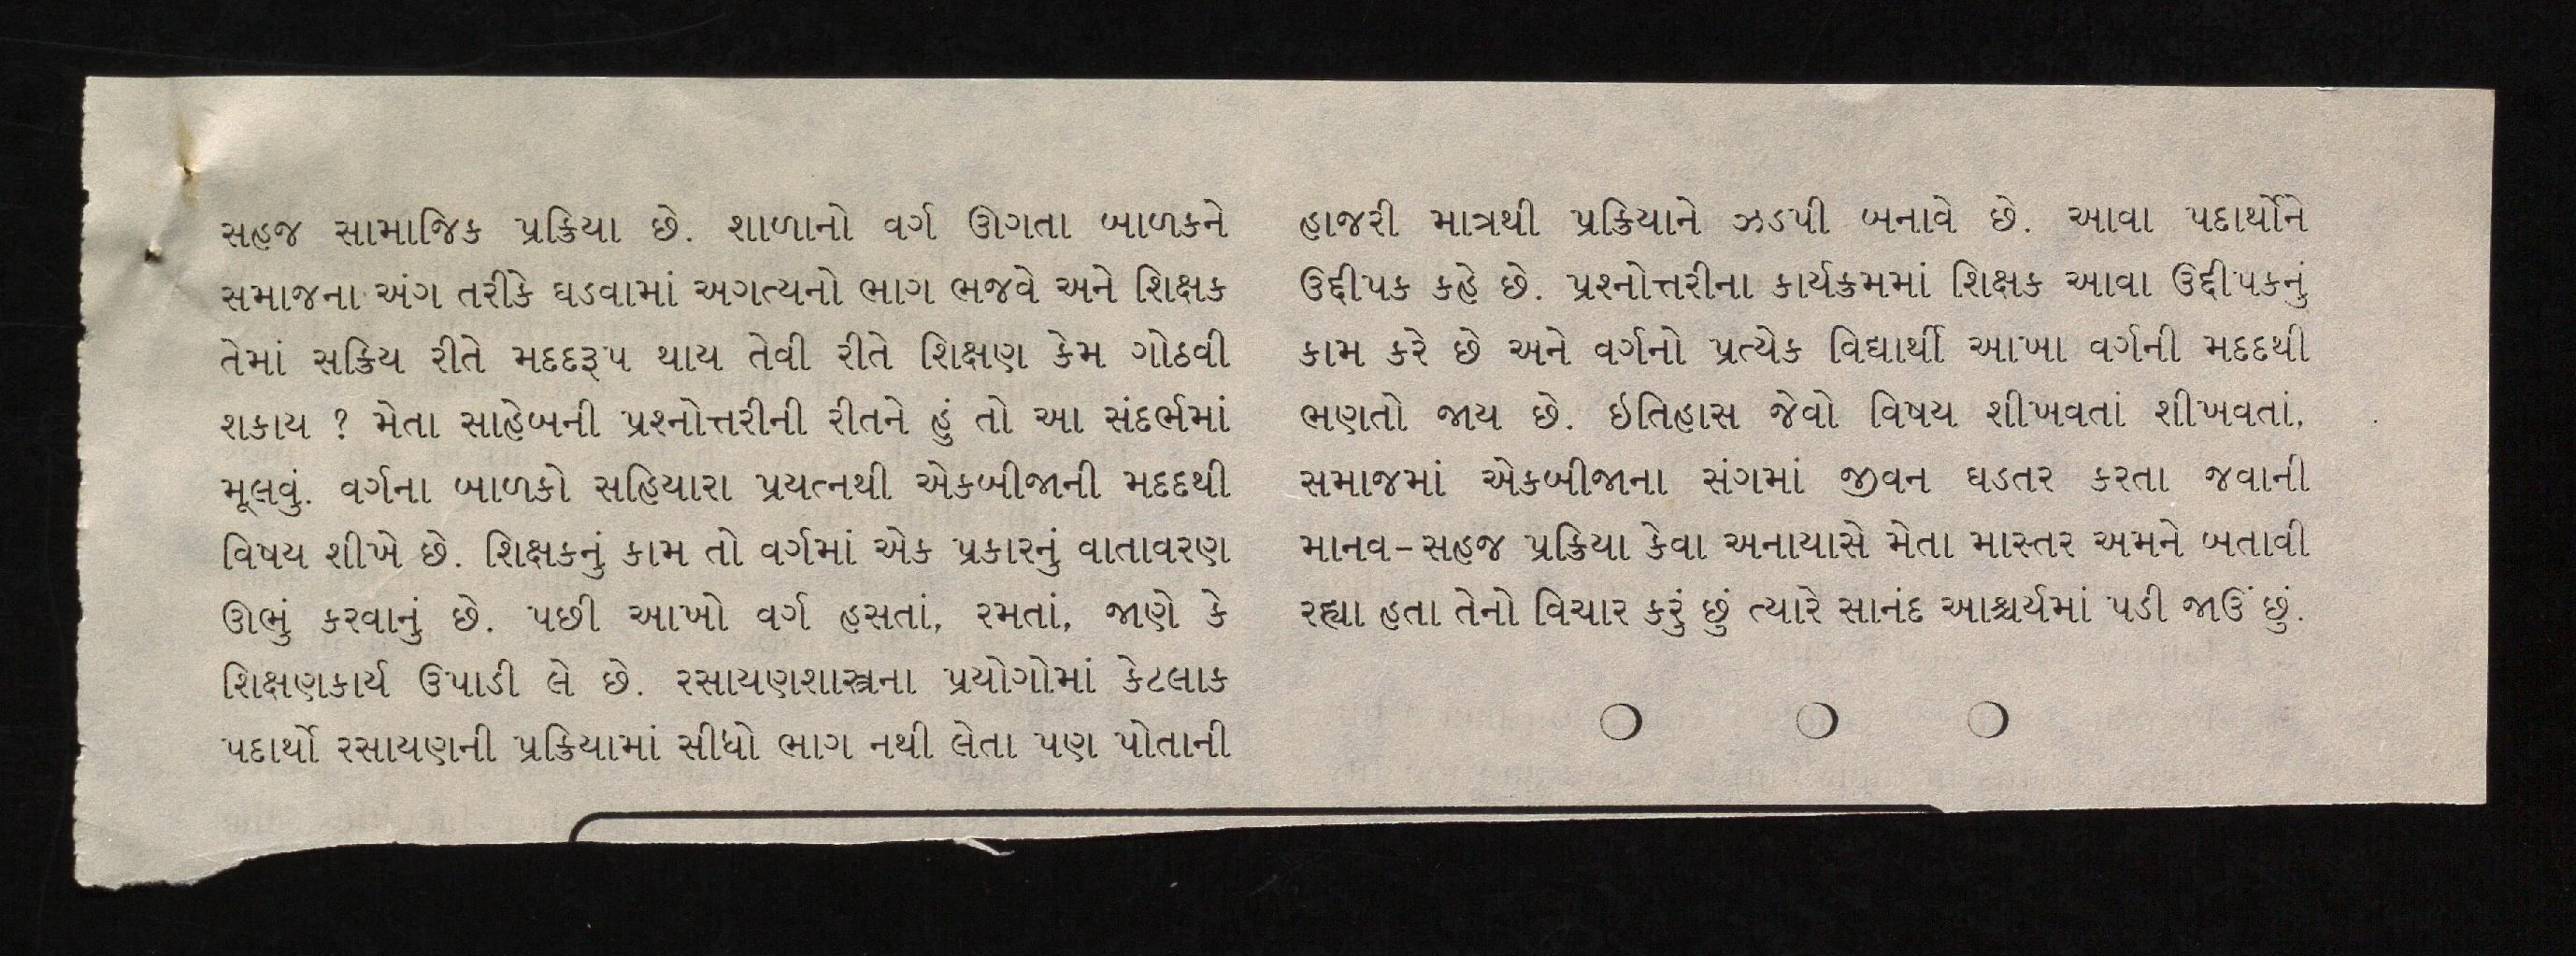 સહજ સામાજિક પ્રક્રિયા છે. શાળાનો વર્ગ ઊગતા બાળકને
સમાજના અંગ તરીકે ઘડવામાં અગત્યનો ભાગ ભજવે અને શિક્ષક
તેમાં સક્રિય રીતે મદદરૂપ થાય તેવી રીતે શિક્ષણ કેમ ગોઠવી
શકાય ? મેતા સાહેબની પ્રશ્નોત્તરીની રીતને હું તો આ સંદર્ભમાં
મૂલવું. વર્ગના બાળકો સહિયારા પ્રયત્નથી એકબીજાની મદદથી
વિષય શીખે છે. શિક્ષકનું કામ તો વર્ગમાં એક પ્રકારનું વાતાવરણ
ઊભું કરવાનું છે. પછી આખો વર્ગ હસતાં, રમતાં, જાણે કે
શિક્ષણકાર્ય ઉપાડી લે છે. રસાયણશાસ્ત્રના પ્રયોગોમાં કેટલાક
પદાર્થો રસાયણની પ્રક્રિયામાં સીધો ભાગ નથી લેતા પણ પોતાની
હાજરી માત્રથી પ્રક્રિયાને ઝડપી બનાવે છે. આવા પદાર્થોને
ઉદ્દીપક કહે છે. પ્રશ્નોત્તરીના કાર્યક્રમમાં શિક્ષક આવા ઉદ્દીપકનું
કામ કરે છે અને વર્ગનો પ્રત્યેક વિદ્યાર્થી આખા વર્ગની મદદથી
ભણતો જાય છે. ઇતિહાસ જેવો વિષય શીખવતાં શીખવતાં,
સમાજમાં એકબીજાના સંગમાં જીવન ઘડતર કરતા જવાની
માનવ-સહજ પ્રક્રિયા કેવા અનાયાસે મેતા માસ્તર અમને બતાવી
રહ્યા હતા તેનો વિચાર કરું છું ત્યારે સાનંદ આશ્ચર્યમાં પડી જાઉં છું.